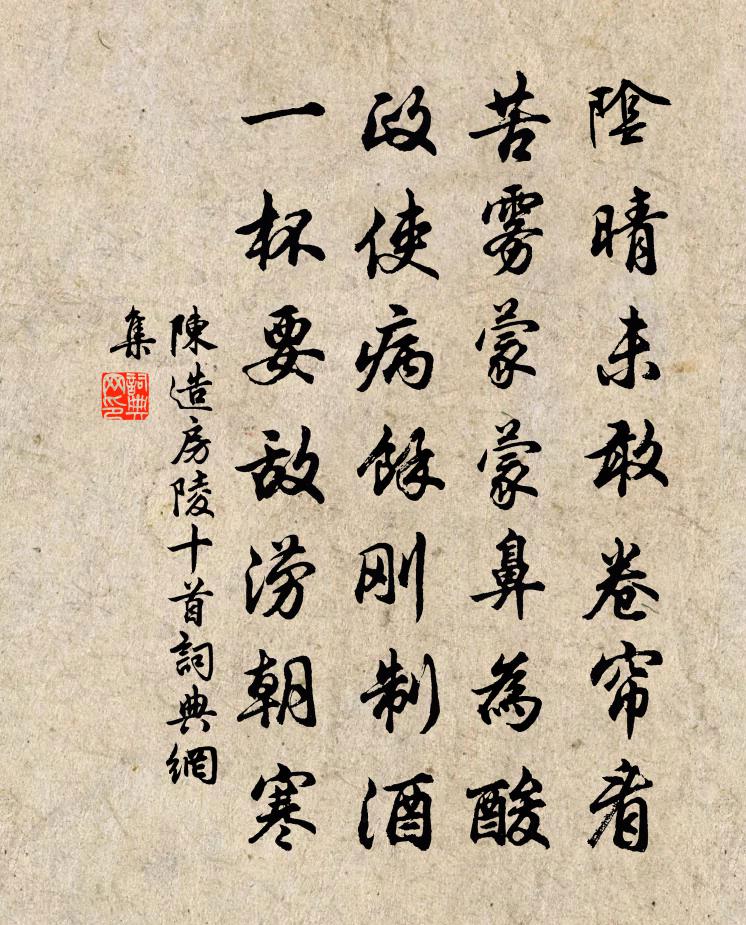 陰晴未敢卷帘看
苦雾蒙蒙鼻為酸
政使病餘刚制酒
一杯要敌涝朝寒
陳造房陵十首詞典網
集
詞典
网印